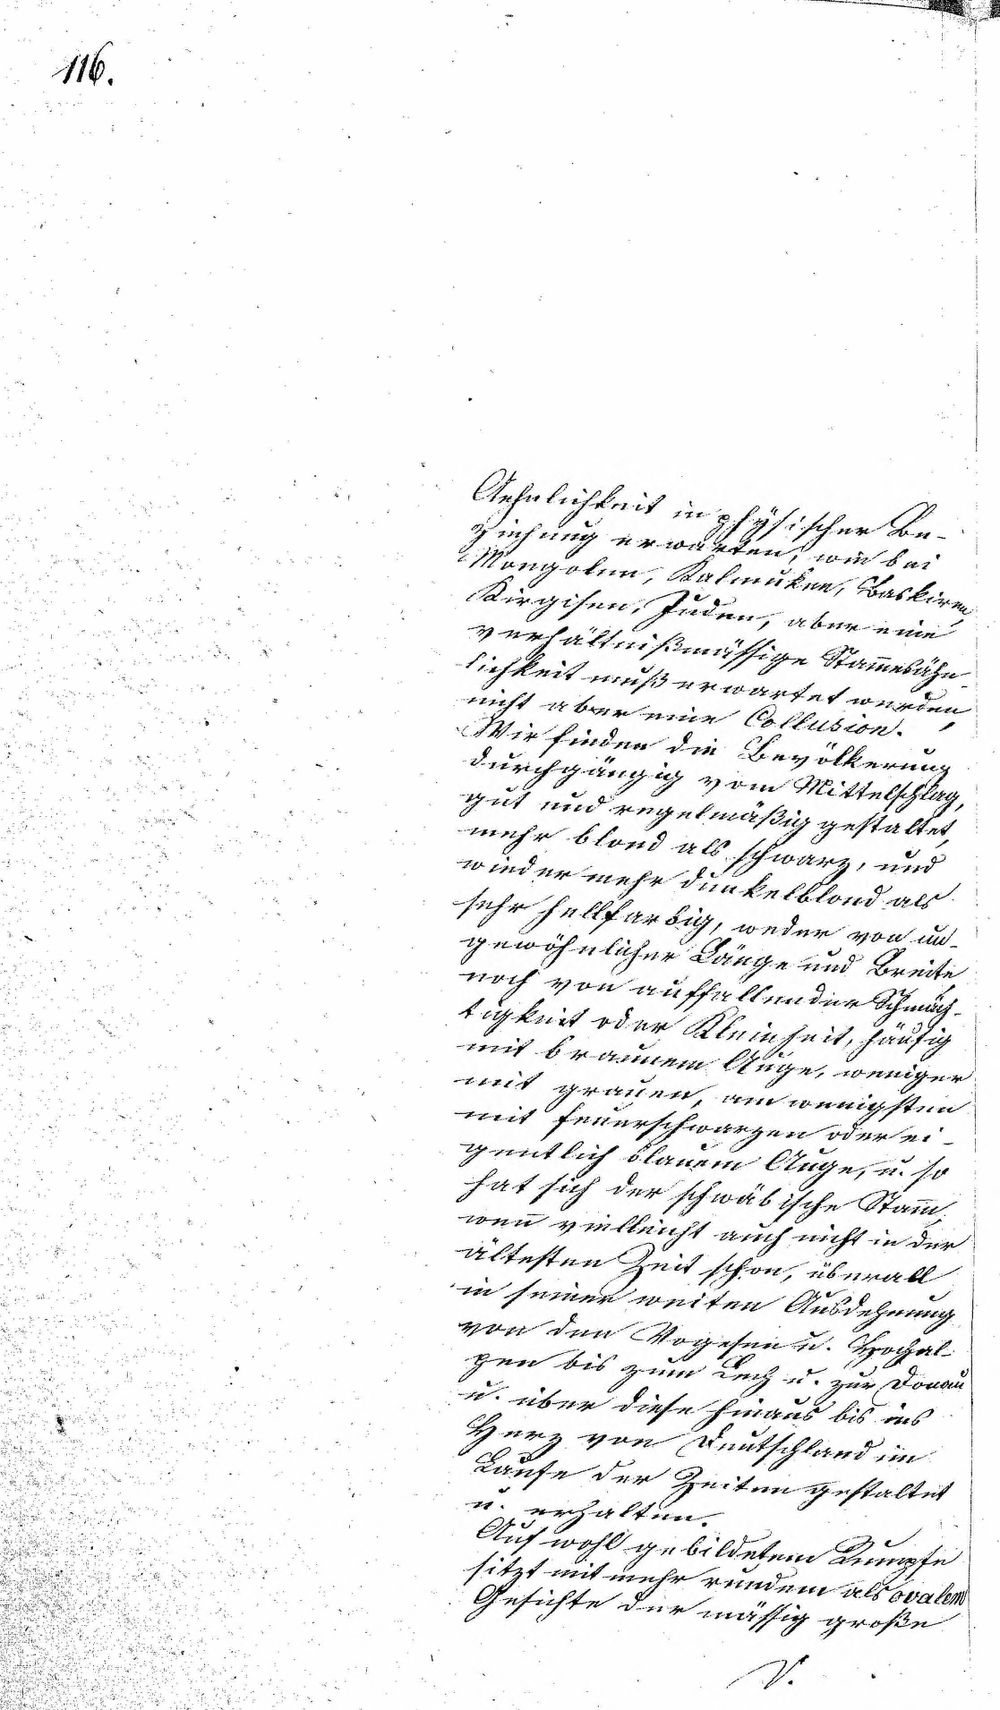 116.
Aehnlichkeit in physischer Be-
ziehung erwarten, wie bei
Mongolen, Kalmuken, Baskiren,
Kirgisen, Juden, aber eine
verhältnißmässige Stam̄esähn-
lichkeit muß erwartet werden,
nicht aber eine Collusion.
Wir finden die Bevölkerung
durchgängig vom Mittelschlag,
gut und regelmäßig gestaltet,
mehr blond als schwarz, und
wieder mehr dunkelblond als
sehr hellfarbig, weder von un-
gewöhnlicher Länge und Breite,
noch von auffallender Schmäch-
tigkeit oder Kleinheit, häufig
mit braunem Auge, weniger
mit grauen, am wenigsten
mit feuerschwarzen oder ei-
gentlich blauem Auge, u. so
hat sich der schwäbische Stam̄,
wen̄ vielleicht auch nicht in der
ältesten Zeit schon, überall
in seiner weiten Ausdehnung
von den Vogesen u. Hochal-
pen bis zum Lech u. zur Donau
u. über diese hinaus bis ins
Herz von Deutschland im
Laufe der Zeiten gestaltet
u. erhalten.
Auf wohl gebildetem Rumpfe
sitzt mit mehr rundem als ovalem
Gesichte der mässig große
V.